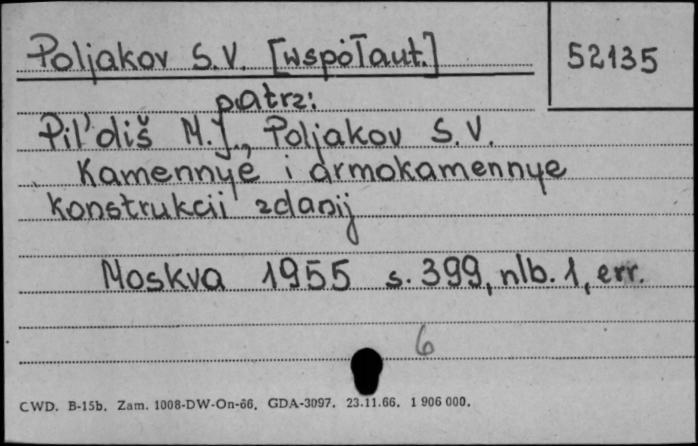 Poljakov S.V. [współaut.]
52135
patrz:
Pil'diš M.J., Poljakov S.V.
Kamennye i armokamennye
konstrukcii zdanij
Moskva 1955 s. 399, nlb. 1, err.
6
CWD. B-15b. Zam. 1008-DW-On-66. GDA-3097. 23.11.66. 1 906 000.